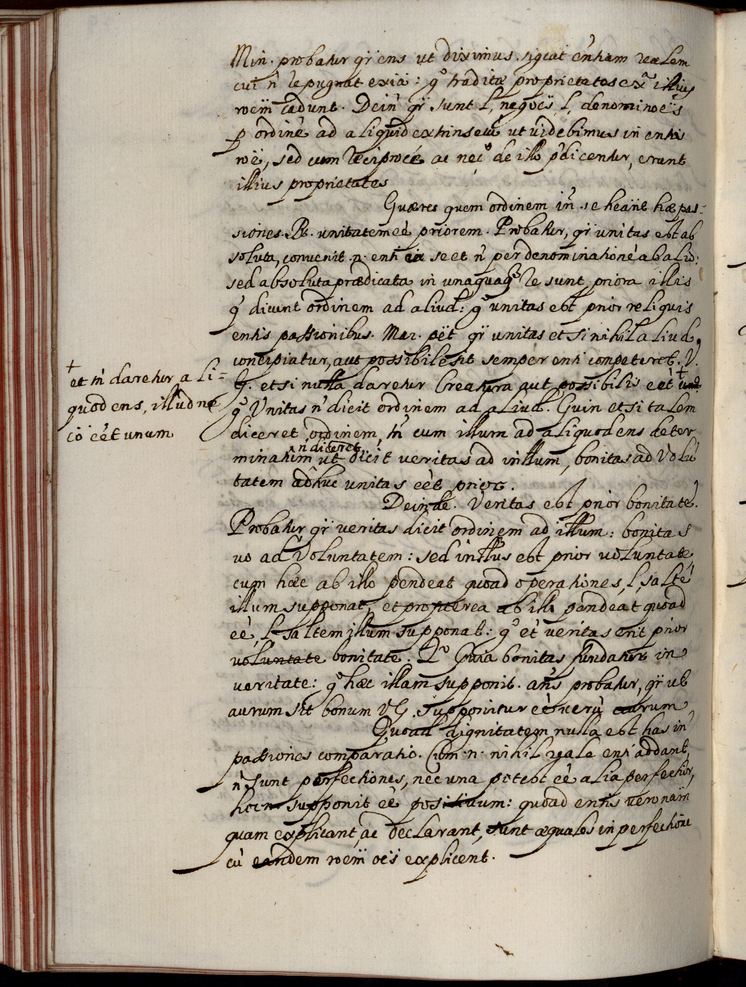 Min. probatur qr̄ ens ut diximus. sigcat entem realem
cui n̄ repugnat exīa: gº traditæ proprietates ex illius
roēm cadunt. Dein qr̄ sunt l, negoēs, l, denominoēs
p ordinē ad aliquid extrinsecū ut videbimus in entis
roē, sed cum reciprocē ac necº de illo pdicentur, erunt
illius proprietates
Quæres quem ordinem in se heant hæ pas-
siones. R. unitatem eē priorem. Probatur, qr̄ unitas est ab
soluta, convenit .n. enti in se et n̄ per denominationē ab alio:
sed absoluta prædicata in unaquaq re sunt priora illis
q̄ dicunt ordinem ad aliud: gº unitas est prior reliquis
entis passionibus. Mai. pēt qr̄ unitas etsi nihil aliud
concipiatur, aut possibile sit semper enti competeret. V.
G. etsi nulla daretur Creatura aut possibilis eēt +
+ et tn̄ daretur ali-
quod ens, illud ne
cō eēt unum
gº Unitas n̄ dicit ordinem ad aliud. Quin etsi talem
diceret ordinem, tn̄ cum illum ad aliquod ens deter
minatum n̄ diceret ut dicit veritas ad intllum, bonitas ad volū
tatem adhuc unitas eēt prior.
Deinde. Veritas est prior bonitate.
Probatur qr̄ veritas dicit ordinem ad intllum: bonitas
vo ad Voluntatem: sed intllus est prior voluntate
cum hæc ab illo pendeat quoad operationes, l, saltē
illum supponat, et propterea ab illo pendeat quoad
eē, l, saltem illum supponat: gº et veritas erit prior
voluntate bonitate. 2º Quia bonitas fundatur in
veritate: gº hæc illam supponit. ans probatur, qr̄ ut
aurum sit bonum VG. supponitur eē verū aurum
Quoad dignitatem nulla est has in
passiones comparatio. Cum .n. nihil reale enti addant,
n̄ sunt perfectiones, nec una potest eē alia perfectior,
hoc supponit eē positiuum: quoad entis vero nām
quam explicant, ac declarant, sunt æquales in perfectione
cū eandem roēm oēs explicent.